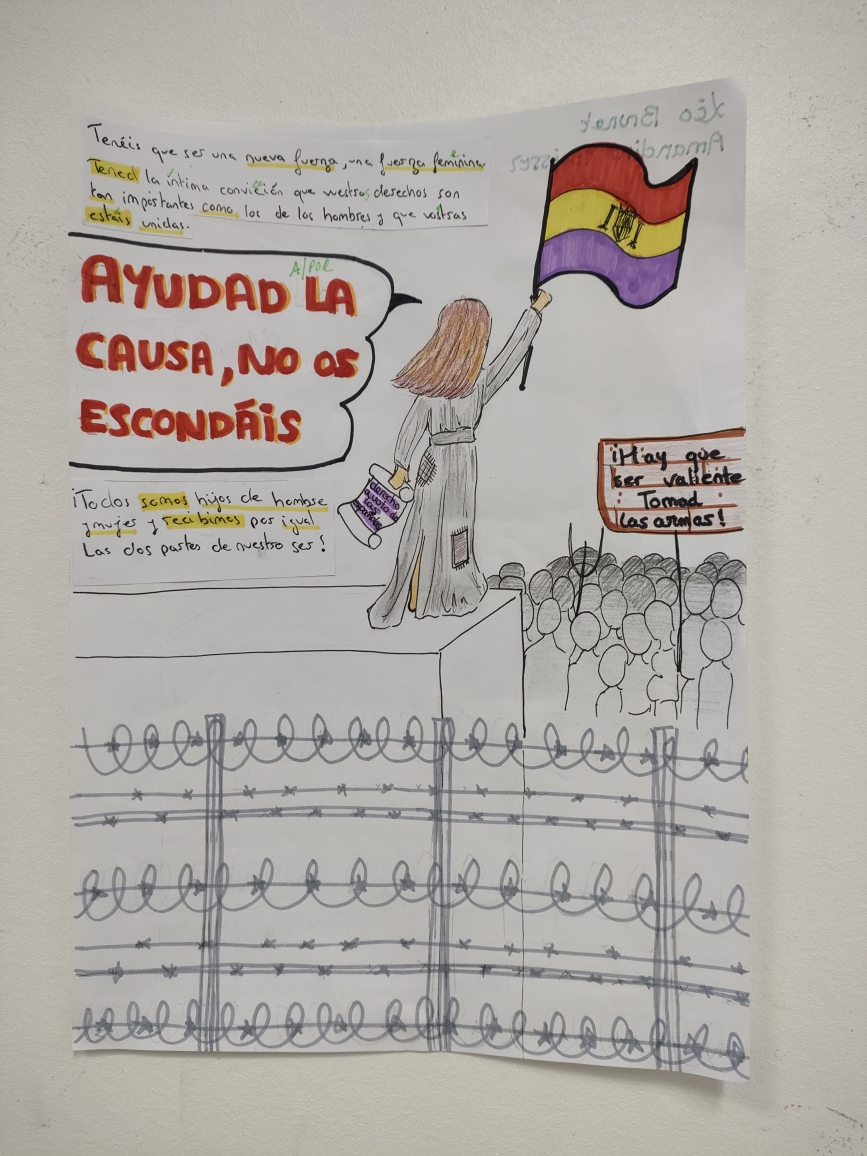 Tenéis que ser una nueva fuerza, una fuerza feminine.
Tened la íntima convicción que vuestros derechos son
tan importantes como los de los hombres y que vostras
estáis unidas.
A/POR
AYUDAD LA
CAUSA, NO OS
ESCONDÁIS
derecho
a voto de
las
españolas
¡Hay que
ser valiente
Tomad
las armas!
¡Todos somos hijos de hombre
y mujer y recibimos por igual
Las dos partes de nuestro ser!
Léo Brunet